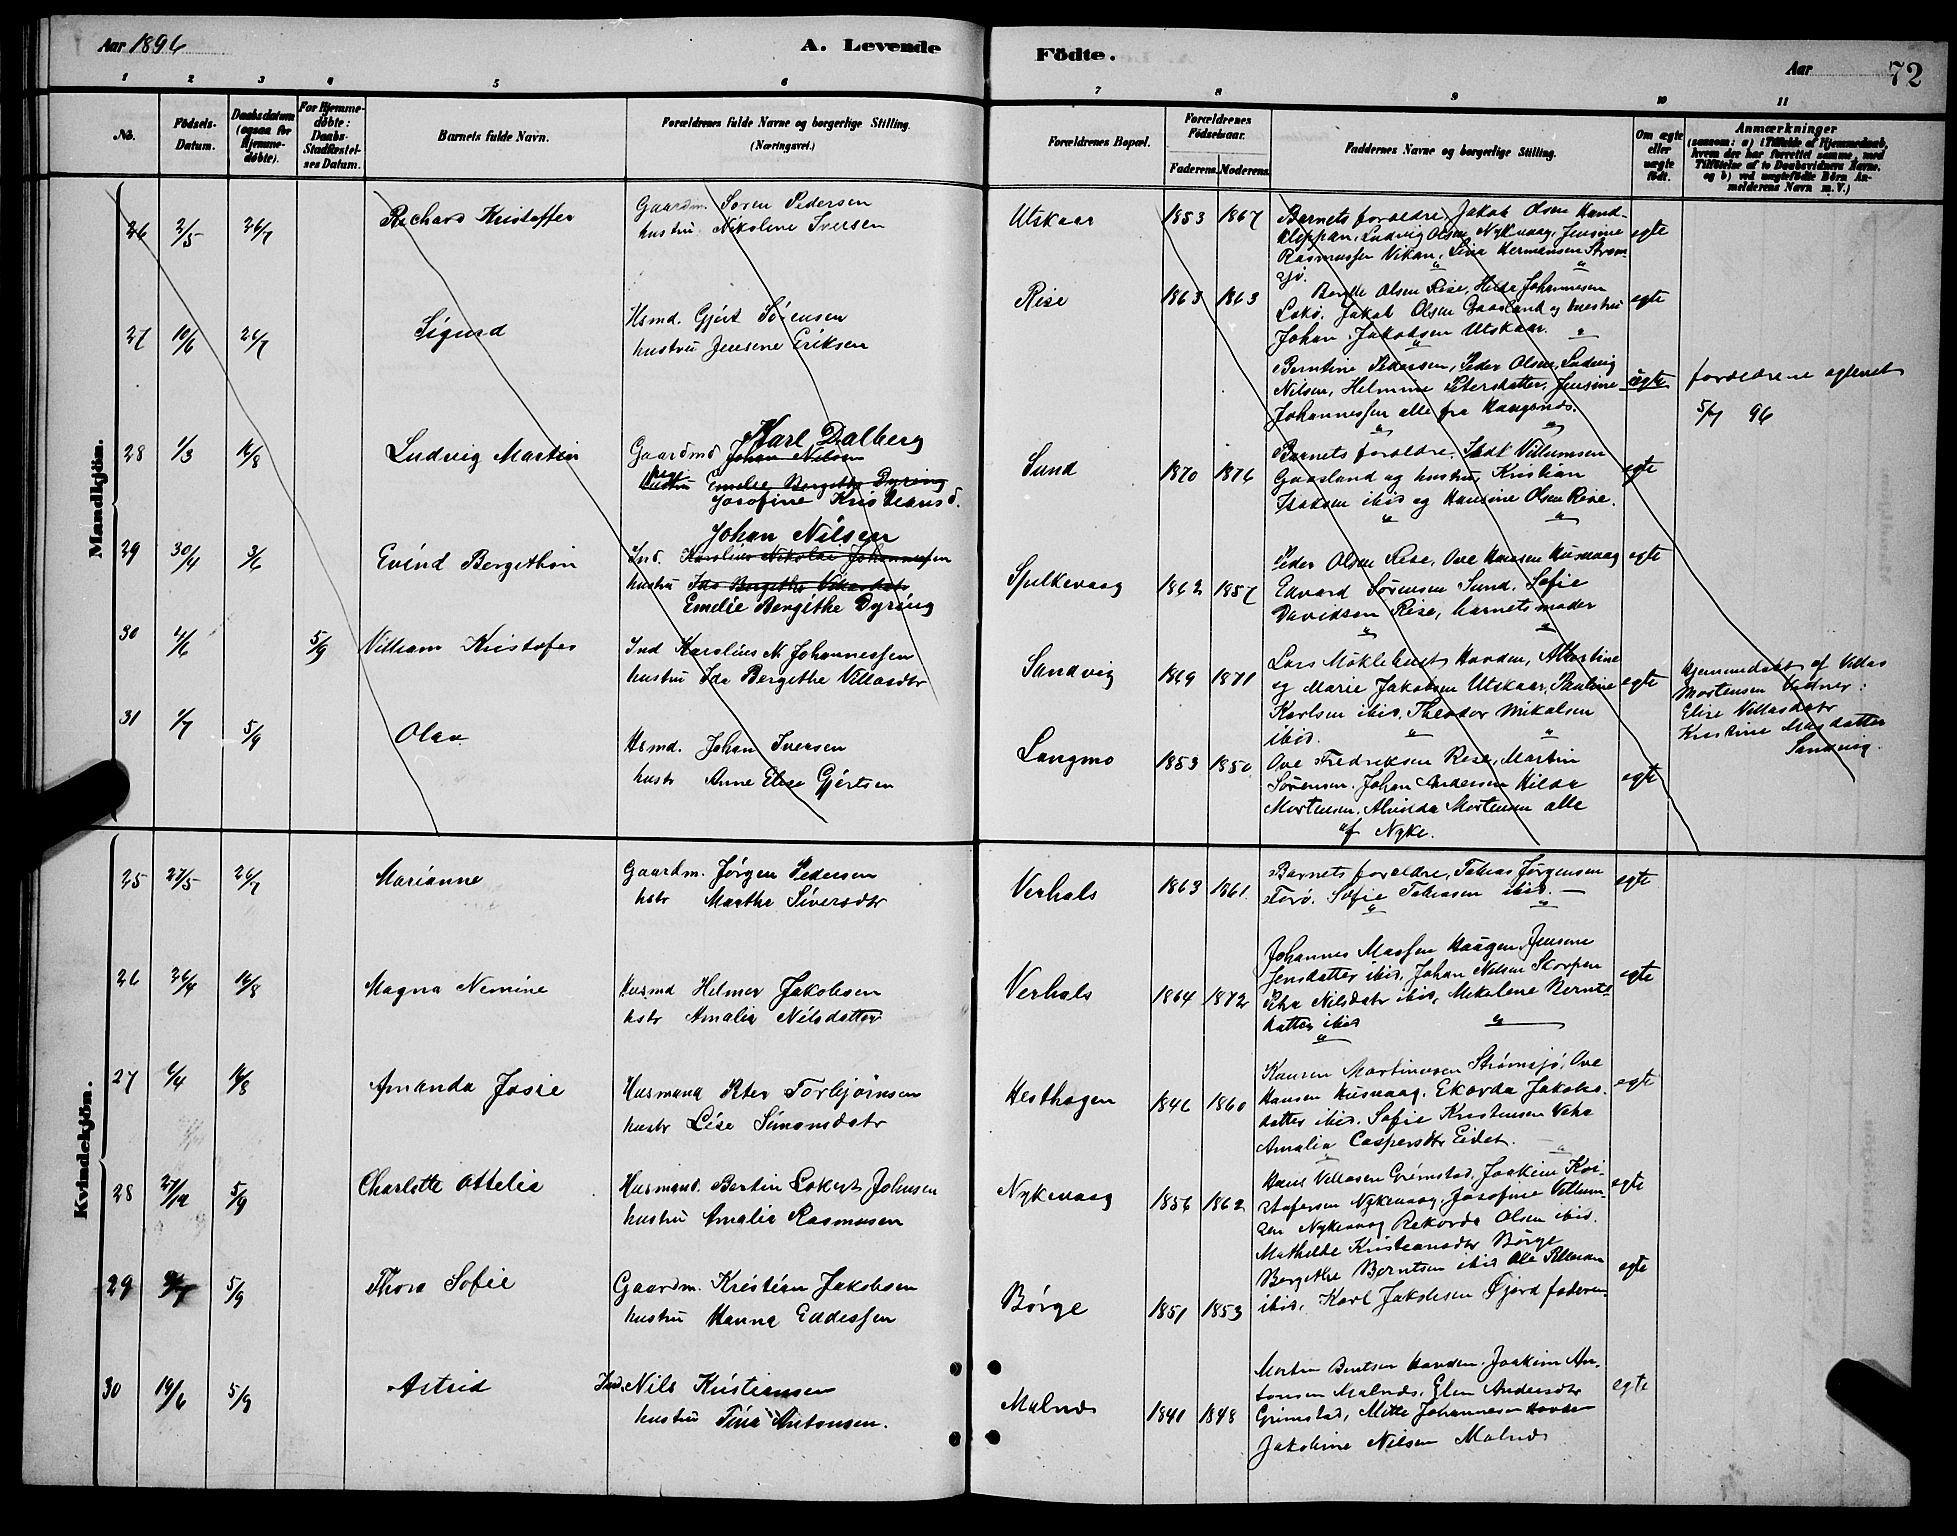 Aar 1896
A. Levende
Födte.
Aar
72
1 2 3 4 5 6 7 8 9 10 11
No.
Födsels-
Datum.
Daabsdatum
(ogsaa for
Hjemme-
døbte).
For Hjemme-
døbte:
Daabs-
Stadfæstel-
ses Datum.
Barnets fulde Navn.
Forældrenes fulde Navne og borgerlige Stilling.
(Næringsvei.)
Forældrenes Bopæl.
Forældrenes
Födselsaar.
Faderens. Moderens.
Faddernes Navne og borgerlige Stilling.
Om ægte
eller
uægte
født.
Anmærkninger
(saasom: a) i Tilfælde af Hjemmedaab,
hvem der har forrettet samme, med
Tilføielse af to Daabsvidners Navne,
og b) ved uægtefødte Börn An-
melderens Navn m. V.)
Mandkjön.
26 2/5 26/7 Richard Kristoffer
Gaardm. Sören Pedersen
hustru Nikoline Iversen
Utskaar 1853 1867
Barnets foreldre, Jakob Olsen Hand-
kloppan, Ludvig Olsen Nykvaag, Jensine
Rasmussen Vikan, Lina Hermansen Strøm-
sjö.
egte
27 10/6 26/7 Sigurd
Hsmd. Gjert Sørensen
hustru Jensene Eriksen
Rise 1863 1863
Olsen Rise, Hilda Johannesen
Jakob Olsen Gaasland og huustru
Johan Jakobsen Utskaar
egte
Berntine Pedersen, Peder Olsen, Ludvig
Nilsen, Helmine Petersdatter, Jensine
Johannessen alle fra Haugsnes.
egte
foreldrene egteviet
5/7 96
28 1/3 16/8 Ludvig Martin
Karl Dalberg
Gaardmd Johan Nilsen
hustru Emelie Bergithe Dyring
Josofine Kristiansd.
Sund 1870 1876
Barnets foreldre, Villumsen
Gaasland og hustru, Kristian
Isaksen ibid og Hansine Olsen Rise.
egte
29 30/4 3/6 Evind Bergithon
Johan Nilsen
Ind. Karolius Nikolai Johannesen
hustru Ida Bergithe Villasdatr
Emelie Bergithe Dyring
Spelkevaag 1862 1857
Peder Olsen Rise, Ove Hansen Husvaag
Edvard Sørensen Sund, Sofie
Davidsen Rise, barnets moder
egte
30 4/6 5/9 Villiam Kristofer
Ind Karolius N. Johannessen
hustru Ida Bergithe Villasdtr
Sandvig 1869 1871
Lars Møklebust Hovden, Albertine
og Marie Jakobsen Utskaar, Pauline
Karlsen ibid, Theodor Mikalsen
ibid.
egte
Hjemmedøbt af Villas
Mortensen Vidner:
Elise Villasdatr
Kristine Magdatter
Sandvig.
31 1/7 5/9 Olav
Hsmd. Johan Iversen
hustr Anne Elise Gjertsen
Langmo 1853 1850
Ove Fredriksen Rise, Martin
Sørensen, Johan Andersen Hilda
Mortensen, Alvilda Mortensen alle
af Nyke.
egte
Kvindekjön.
25 27/5 26/7 Marianne
Gaardm. Jörgen Pedersen
hstr Marthe Siversdtr
Verhals 1863 1861
Barnets foreldre, Tobias Jørgensen
Torö. Sofie Tobiasen ibid.
egte
26 26/4 16/8 Magna Nemine
Husmd Helmer Jakobsen
hstr Amalie Nilsdatter
Verhals 1864 1872
Johannes Massen Haugen, Jensene
Jensdatter ibid, Johan Nilsen Skorpen
Petra Nilsdatr ibid, Mekaline Bernts-
datter ibid
egte
27 6/4 16/8 Amanda Josie
Husmand Peter Torbjørnsen
hustr Lise Simonsdatr
Hesthagen 1846 1860
Hansen Martinusen Strømsjø, Ove
Hansen Husvaag, Ekorda Jakobs-
datter ibid, Sofie Kristensen
Amalia Caspersdtr Eidet.
egte
28 5/9 Charlotte Ottelie
Husmand. Bertin Lokert Johnsen
hustru Amalie Rasmusen
Nykevaag 1856 1862
Hans Villasen Grimstad, Joakim Kri-
stofersen Nykvaag, Josefine Villum-
sen Nykvaag Rekorda Olsen ibid.
egte
29 5/9 Thora Sofie
Gaardm. Kristian Jakobsen
hustru Hanna Eddessen
Börge 1851 1853
Mathilde Kristiansdtr Börge
Bergithe Berntsen ibid Ole
ibid, Karl Jakobsen Øjord faderen
egte
30 19/6 5/9 Astrid
Ind. Nils Kristiansen
hustru Tina Antonsen.
Malnes 1841 1848
Morten Bentsen Hovden, Joakim An-
tonsen Malnes, Elen Andersdtr
Grimstad, Mette Johannesen Hovden
Jakobine Nilsen Malnes
egte